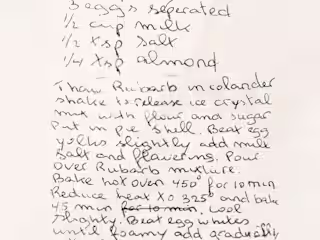 3 eggs seperated
1/2 cup milk
1/2 tsp salt
1/4 tsp almond
Thaw Rubarb in colander
shake to release ice crystal
mix with flour and sugar
Put in pie shell. Beat egg
yolks slightly add milk
salt and flavering. Pour
over Rubarb mixture.
Bake hot oven 450° for 10 min
Reduce heat to 325° and bake
45 min for 10 min. Cool
slighty. Beat egg whites
until foamy add gradually